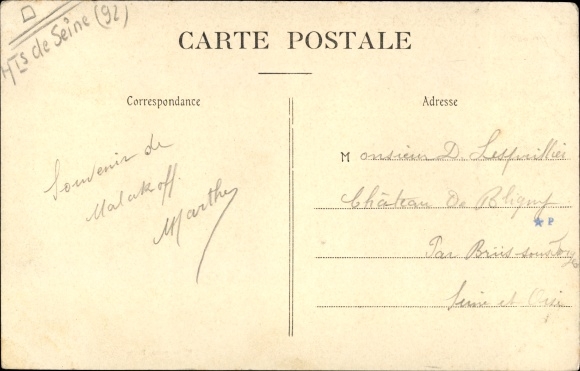 Hts de Seine (92)
CARTE POSTALE
Correspondance
Adresse
Souvenir de
Malakoff.
Marthe
Monsieur D. Lespuillier
Château De Bligny
P
Par Briis-sous-Forges
Seine et Oise